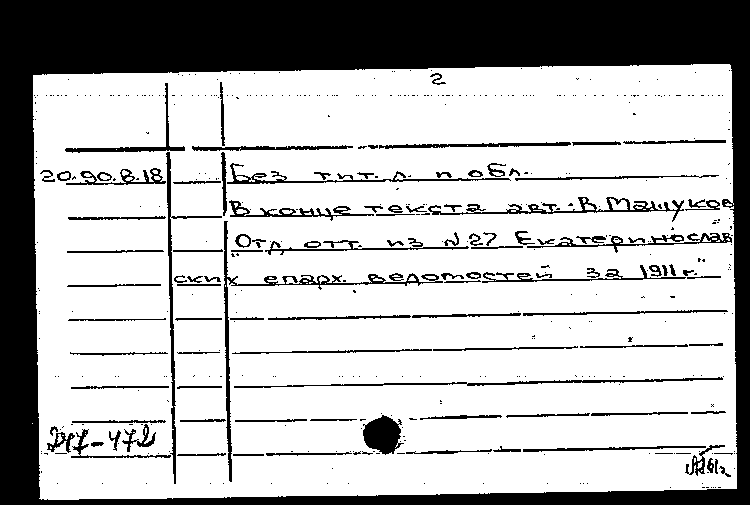 2
20.90.8.18 Без тит. л. и обл.
В конце текста авт.: В. Машуков
"Отд. отт. из №27 Екатеринослав
ских епарх. ведомостей за 1911 г."